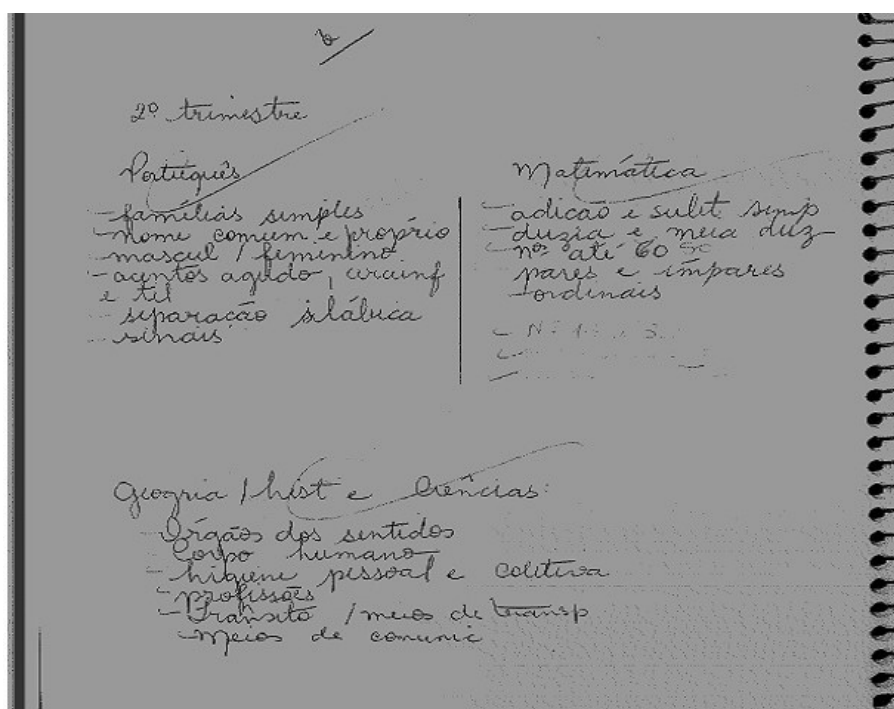 2º trimestre
Português
- famílias simples
- nome comum e próprio
mascul / feminino
- acentos agudo, circunf
e til
- separação silábica
- sinais
Matemática
- adicão e subt. simp
- duzia e meia duz
- nºs até 60
pares e ímpares
- ordinais
Geogria / hist e Ciências:
- Órgãos dos sentidos
Corpo humano
- higiene pessoal e coletiva
- profissões
- Trânsito / meios de transp
- Meios de comunic